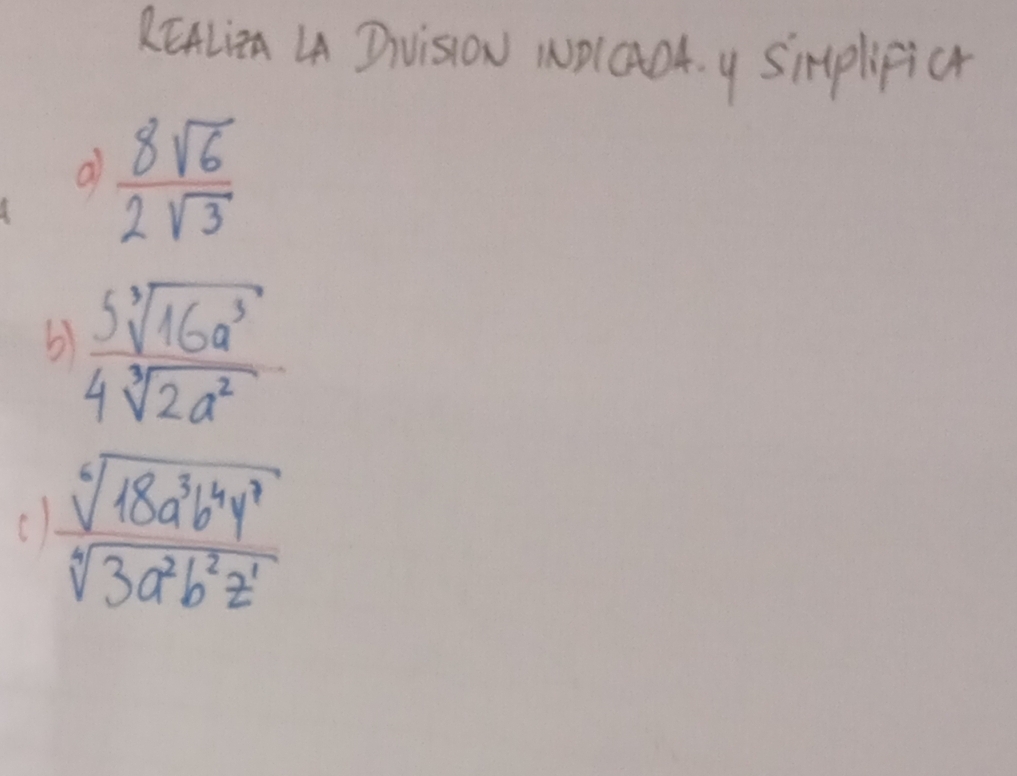 REALIZA LA DIVISION INDICADA. y SIMPLIFICA
a) 8√6 / 2√3
b) 5∛16a³ / 4∛2a²
c) ⁶√18a³b⁴y⁷ / ⁴√3a²b²z¹